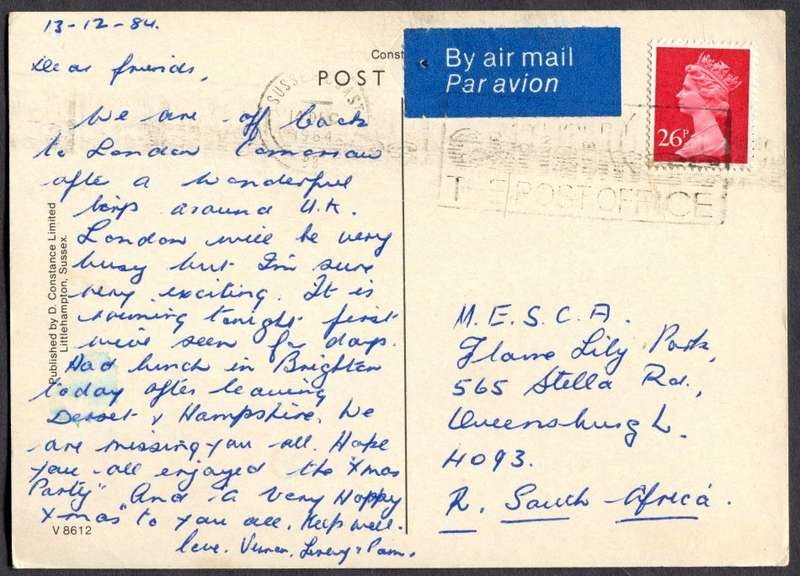 13-12-84.
Dear friends,
We are off back
to London tomorrow
after a wonderful
trip around U.K.
London will be very
busy but I'm sure
very exciting. It is
raining tonight first
we've seen for days.
Had lunch in Brighton
today after leaving
Dorset & Hampshire. We
are missing you all. Hope
you all enjoyed the "Xmas
Party" And a very Happy
Xmas to you all. Keep well.
love. Vernon, & Pam.
V 8612
Published by D. Constance Limited
Littlehampton, Sussex.
Const
POST
SUSSEX COAST
DEC
1984
By air mail
Par avion
26P
THE POST OFFICE
M.E.S.C.A.
Flame Lily Park,
565 Stella Rd.,
Queensburgh.
4093.
R. South Africa.